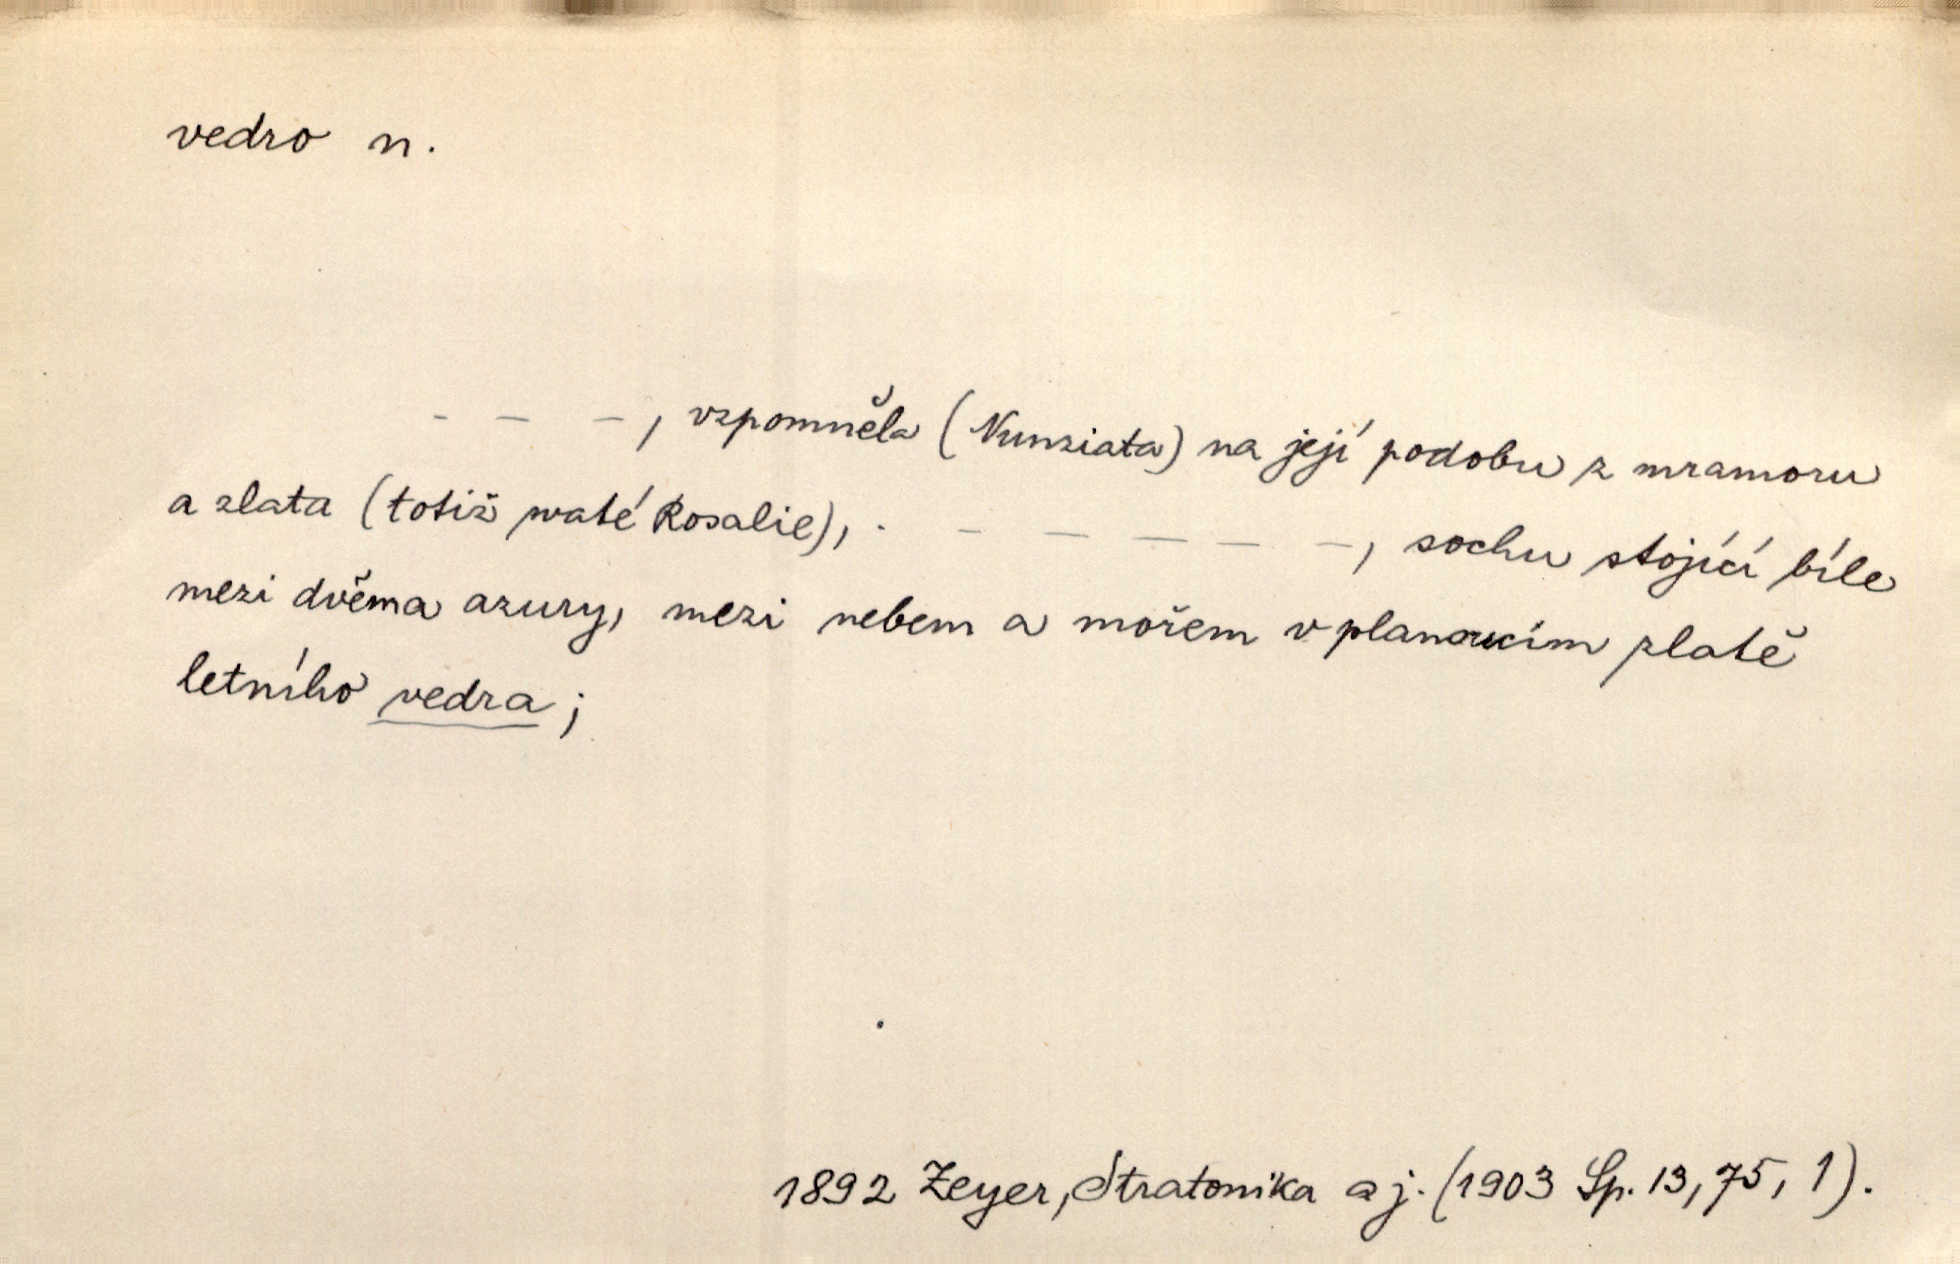 vedro n.
- - -, vzpomněla (Nunziata) na její podobu z mramoru
a zlata (totiž svaté Rosalie), - - - - - -, sochu stojící bíle
mezi dvěma azury, mezi nebem a mořem v planoucím zlatě
letního vedra;
1892 Zeyer, Stratonika a j. (1903 Sp. 13, 75, 1).